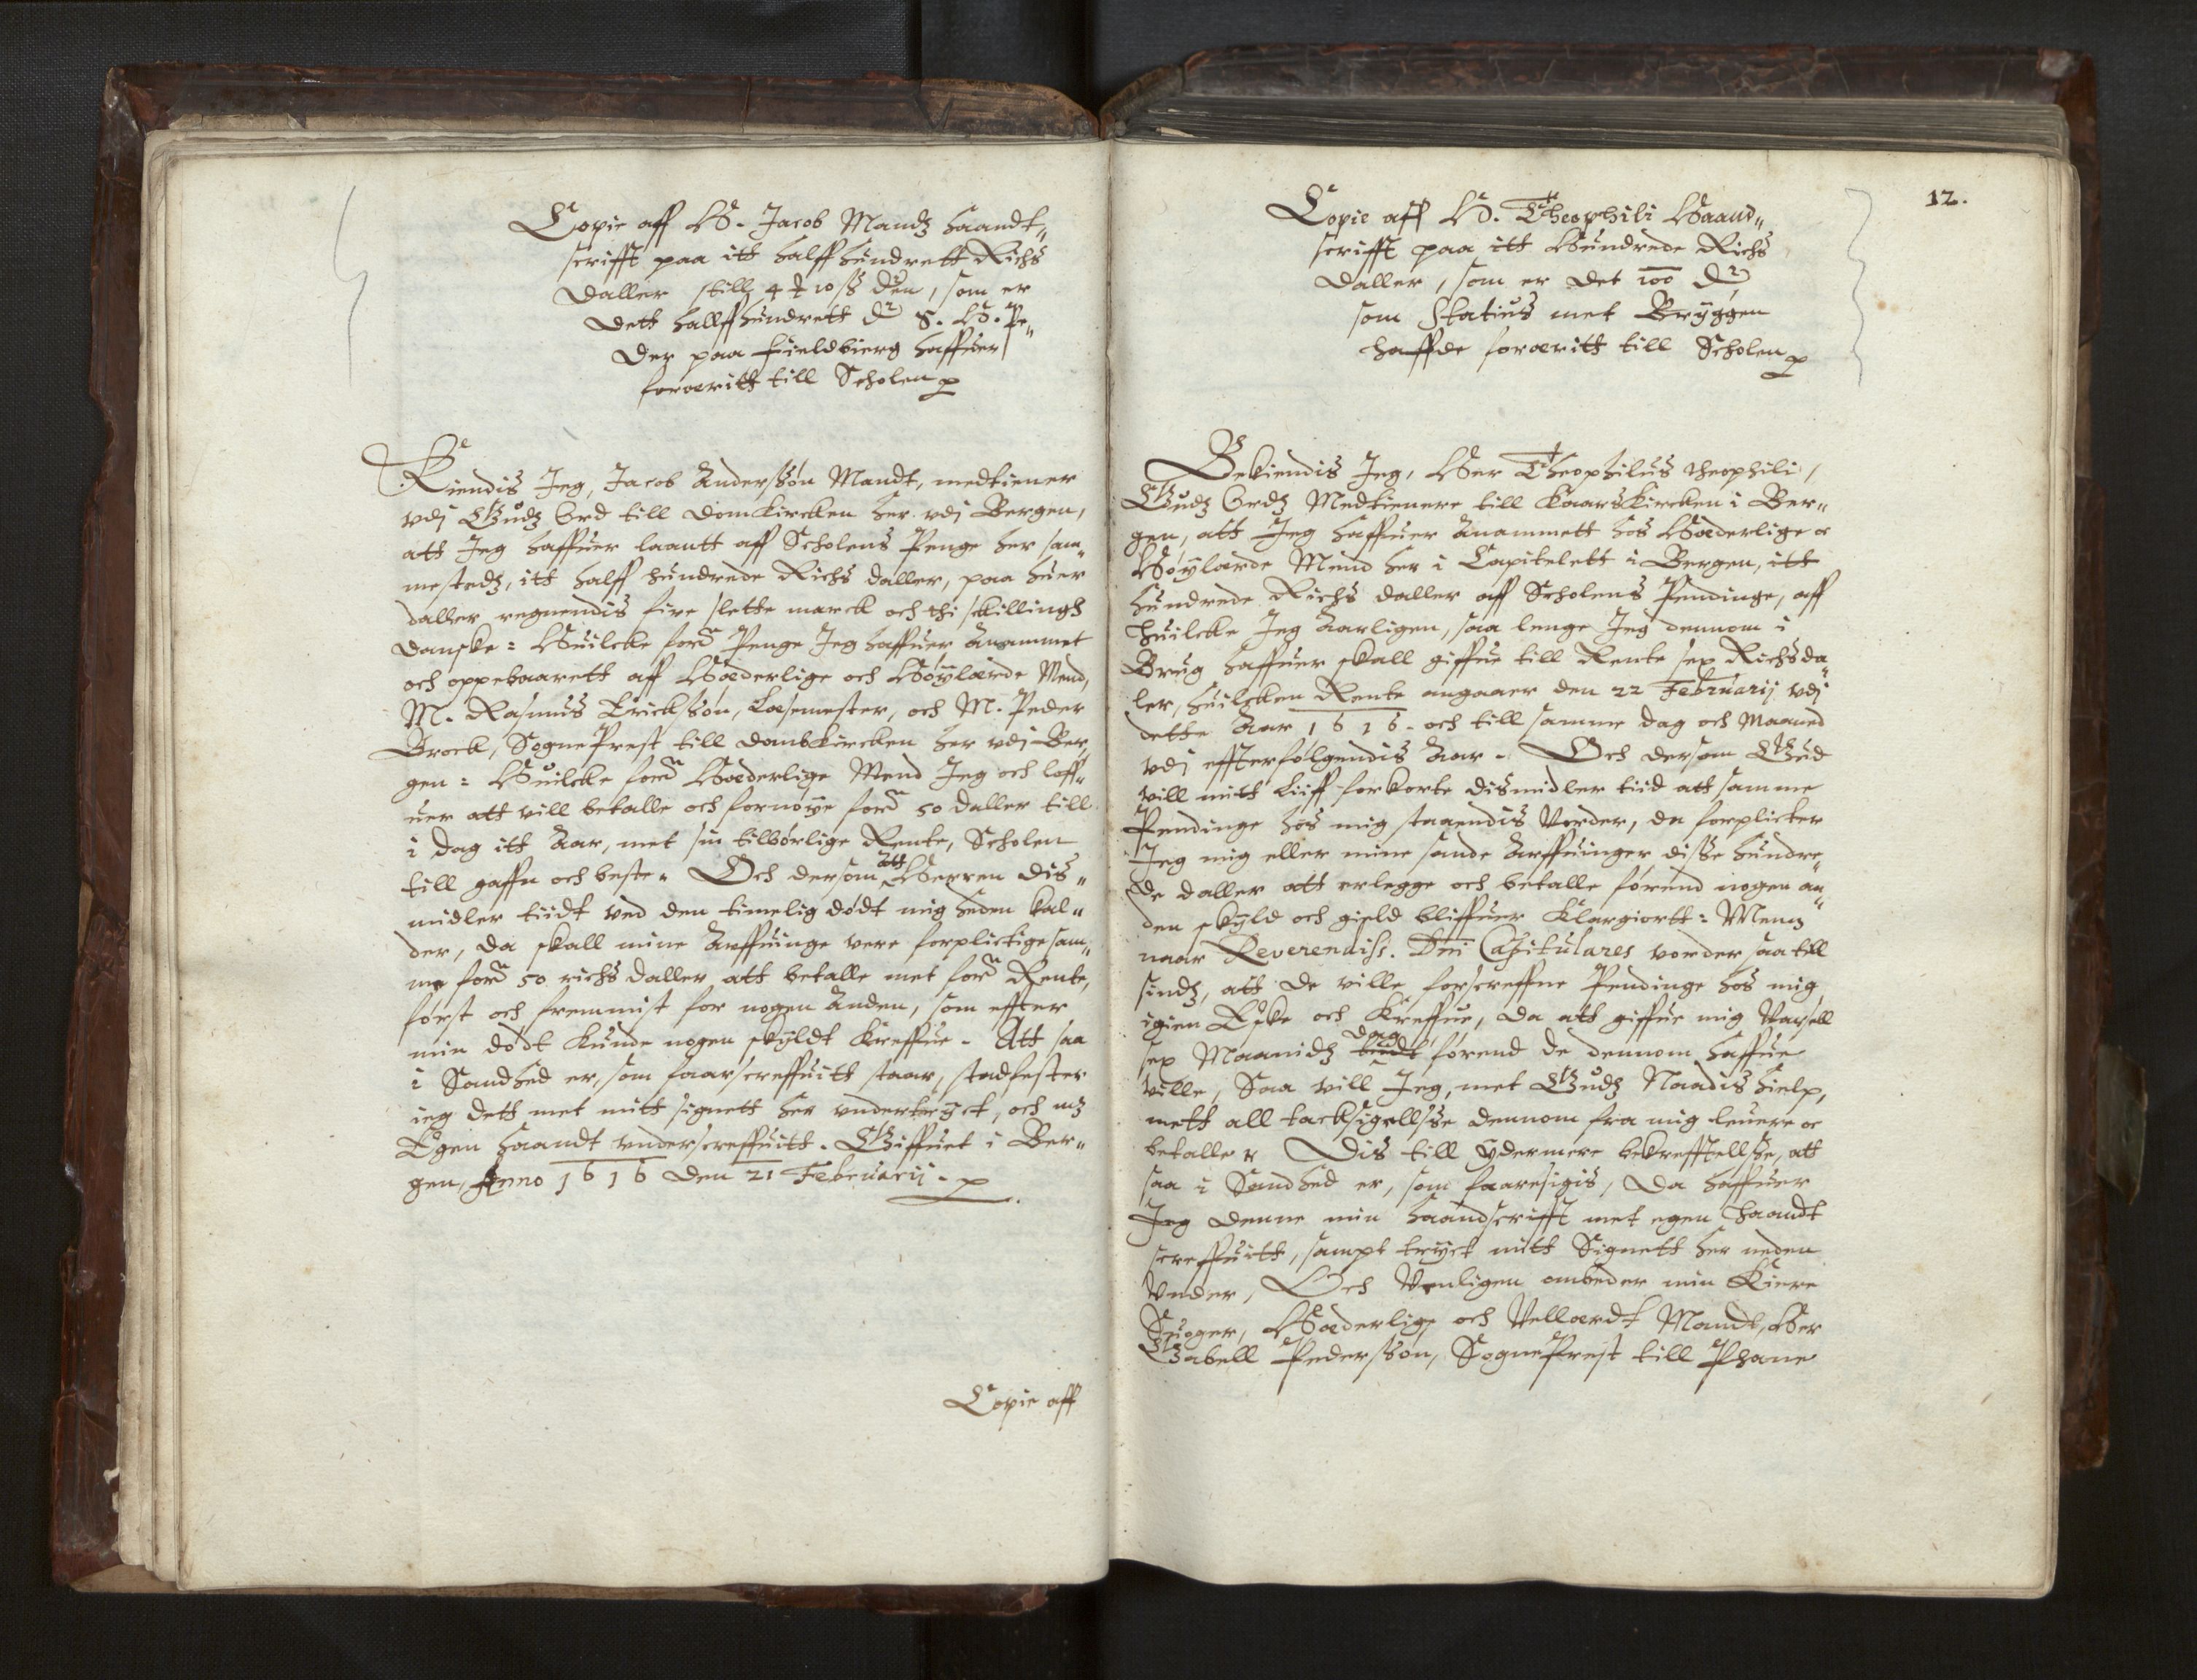 Copie aff H. Jacob Mandz haandt„
scrifft paa itt halff hundrett Richs
daller still 4 ꝶ 10 ß dēn, som er
dett hallffhundrett dr S. H. Pe„
der paa Fieldbierg haffuer
foræritt till Scholen
Kiendis Jeg, Jacob Anderssøn Mandt, medtiener
vdj Gudz Ord till domkircken her vdj Bergen,
att Jeg haffuer laantt aff Scholens Penge her sam„
mestedz, itt halff hundrede Richs daller, paa huer
daller regnendis fire slette marck och thi skillingh
danske: Huilcke ford Penge Jeg haffuer Anammet
och oppebaarett aff Hæderlige och Høylærde Mend,
M. Rasmus Erickssøn, Læsemester, och M. Peder
Brock, Sogne Prest till domkircken her vdj Ber„
gen: Huilcke ford Hæderlige Mend Jeg och loff„
uer att vill betalle och fornøye ford 50 daller till
i dag itt Aar, met sin tilbørlige Rente, Scholen
till gaffn och beste. Och dersom Att Herren dis„
midler tiidt ved den timelig dødt mig heden kal„
der, da skall mine Arffuinge vere forplictige sam„
me ford 50 richs daller att betalle met ford Rente,
først och fremmist for nogen Anden, som effter
min dødt kunde nogen skyldt kreffue. Att saa
i Sandhed er, som faarscreffuitt staar, stadfester
ieg dett met mitt signett her vndertryct, och mz
Egen haandt vnderscreffuitt. Giffuet i Ber„
gen, Anno 1616 den 21 Februarij.
Copie aff
12.
Copie aff H. Theophili Haand„
scrifft paa itt Hundrede Richs
daller, som er det 100 dr
som Statius met Bryggen
haffde foræritt till Scholen
Bekiendis Jeg, Her Theophilus theophili,
Gudz Ordz Medtienere till Kaarskircken i Ber„
gen, att Jeg haffuer Anammett hos Hæderlige oc
Høylærde Mend her i Capitelett i Bergen, itt
hundrede Richs daller aff Scholens Pendinge, aff
huilcke Jeg Aarligen, saa lenge Jeg dennom i
Brug haffuer skall giffue till Rente sex Richsda„
ler, huilcken Rente angaaer den 22 Februarij vdj
dette Aar 1616. och till samme dag och Maaned
vdj effterfølgendis Aar. Och dersom Gud
vill mitt Liiff forkorte dismidler tiid att samme
Pendinge hos mig staaendis Vorder, da forplicter
Jeg mig eller mine sande Arffuinger disse hundre„
de daller att erlegge och betalle førend nogen an„
den skyld och gield bliffuer klargiortt: Menn
naar Reverendiss. Dni Capitulares vorder saa till
sindz, att de ville forscreffne Pendinge hos mig
igien Eske och Kreffue, da att giffue mig Varsell
sex Maanidz tiidt dag førend de dennom haffue
ville, Saa vill Jeg, met Gudz Naadis hielp,
mett all tacksigellsse dennom fra mig leuere oc
betalle. Dis till ydermere bekrefftellsse, att
saa i Sandhed er, som faaresigis, da haffuer
Jeg denne min haandscrifft met egen haandt
screffuitt, sampt tryct mitt Signett her neden
vnder, Och Venligen ombeder min Kiere
Suoger, Hæderlige och Vellærdt Mandt, Her
Gabell Pederssøn, Sogne Prest till Phane